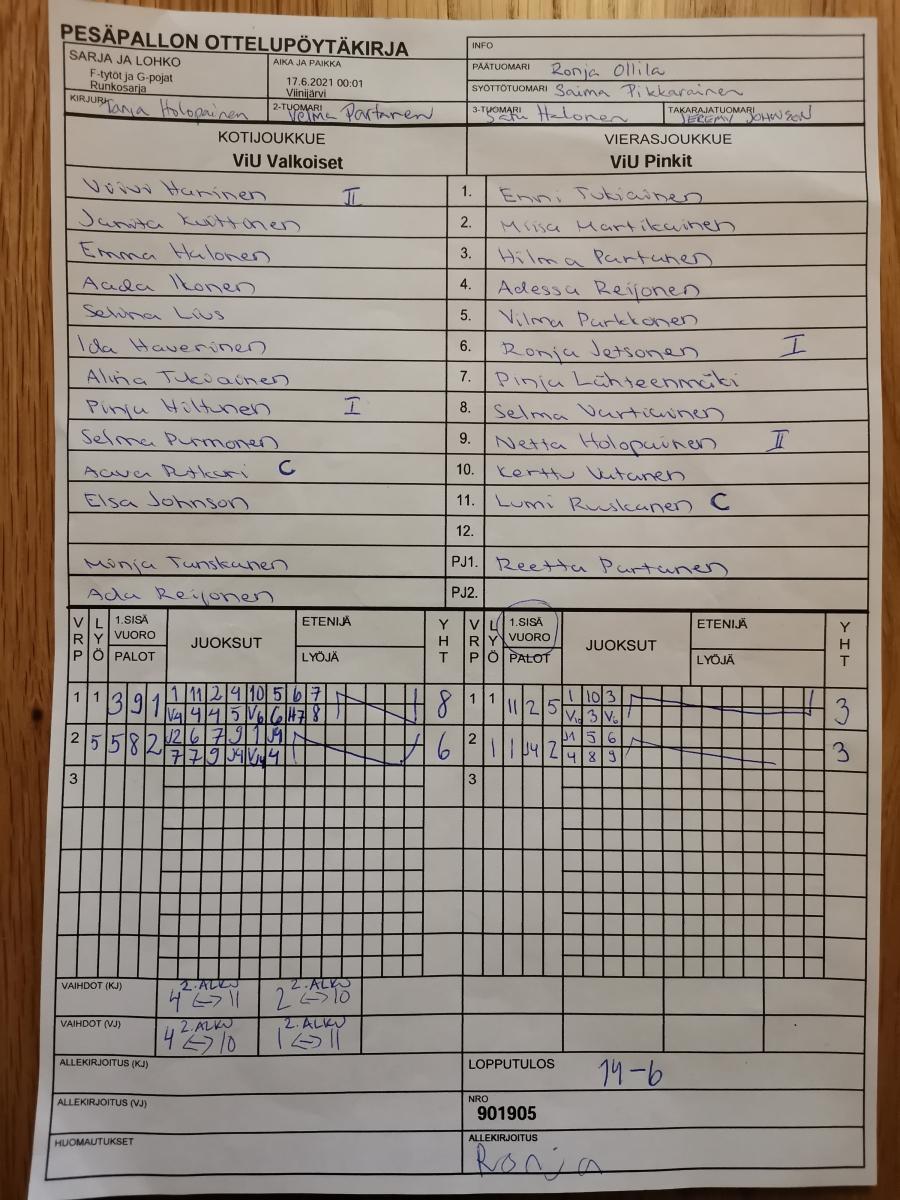 PESÄPALLON OTTELUPÖYTÄKIRJA
INFO
SARJA JA LOHKO
F-tytöt ja G-pojat
Runkosarja
AIKA JA PAIKKA
17.6.2021 00:01
Viinijärvi
PÄÄTUOMARI Ronja Ollila
SYÖTTÖTUOMARI Saima Pikkarainen
KIRJURI Tanja Holopainen
2-TUOMARI Velma Partanen
3-TUOMARI Satu Halonen
TAKARAJATUOMARI JEREMY JOHNSON
KOTIJOUKKUE
ViU Valkoiset
VIERASJOUKKUE
ViU Pinkit
Viivi Harinen II 1. Enni Tukiainen
Janita Kuittinen 2. Miisa Martikainen
Emma Halonen 3. Hilma Partanen
Aada Ikonen 4. Adessa Reijonen
Selina Lius 5. Vilma Parkkonen
Ida Haverinen 6. Ronja Jetsonen I
Alina Tukiainen 7. Pinja Lähteenmäki
Pinja Hiltunen I 8. Selma Vartiainen
Selma Purmonen 9. Netta Holopainen II
Aava Putkuri C 10. Kerttu Vatanen
Elsa Johnson 11. Lumi Ruuskanen C
12.
Minja Tanskanen PJ1. Reetta Partanen
Ada Reijonen PJ2.
VRP LYÖ 1.SISÄ VUORO PALOT JUOKSUT ETENIJÄ LYÖJÄ YHT VRP LYÖ 1.SISÄ VUORO PALOT JUOKSUT ETENIJÄ LYÖJÄ YHT
1 1 3 9 1 1 11 2 4 10 5 6 7 8 1 1 11 2 5 1 10 3 3
V4 4 4 5 V6 6 H7 8 V10 3 V6
2 5 5 8 2 J2 6 7 9 1 J4 6 2 1 1 J4 2 J1 5 6 3
7 7 9 J4 V4 4 4 8 9
3 3
VAIHDOT (KJ) 2. ALKU 4 <-> 11 2. ALKU 2 <-> 10
VAIHDOT (VJ) 2. ALKU 4 <-> 10 2. ALKU 1 <-> 11
ALLEKIRJOITUS (KJ)
LOPPUTULOS 14-6
ALLEKIRJOITUS (VJ)
NRO
901905
HUOMAUTUKSET
ALLEKIRJOITUS
Ronja